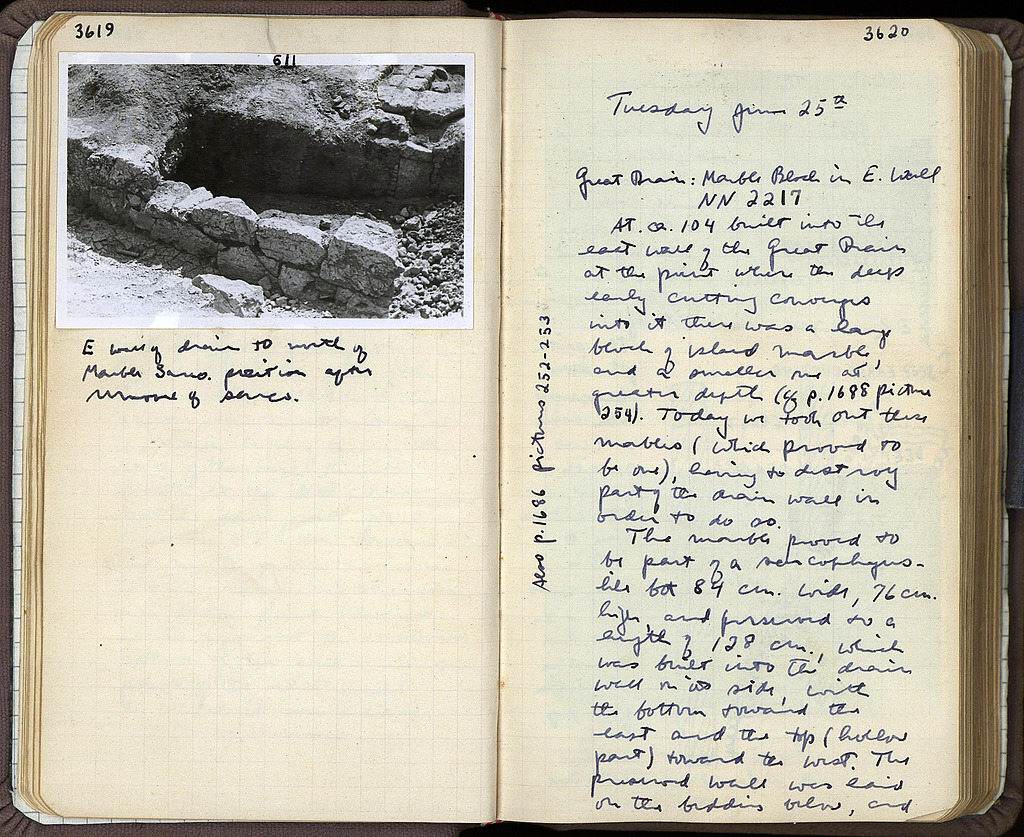 3619
611
E wall of drain to north of
Marble Sarco. position after
removal of sarco.
3620
Tuesday June 25th
Great Drain: Marble Block in E. Wall
NN 2217
At ca. 104 built into the
east wall of the Great Drain
at the point where the deep
early cutting converges
into it there was a large
block of island marble,
and a smaller one at
greater depth (cf p. 1688 picture
254). Today we took out these
marbles (which proved to
be one), having to destroy
part of the drain wall in
order to do so.
The marble proved to
be part of a sarcophagus-
like box 84 cm. wide, 76 cm.
high, and preserved to a
length of 128 cm., which
was built into the drain
wall on its side, with
the bottom toward the
east and the top (hollow
part) toward the west. The
preserved wall was laid
on the bedding below, and
Also p. 1686 pictures 252-253